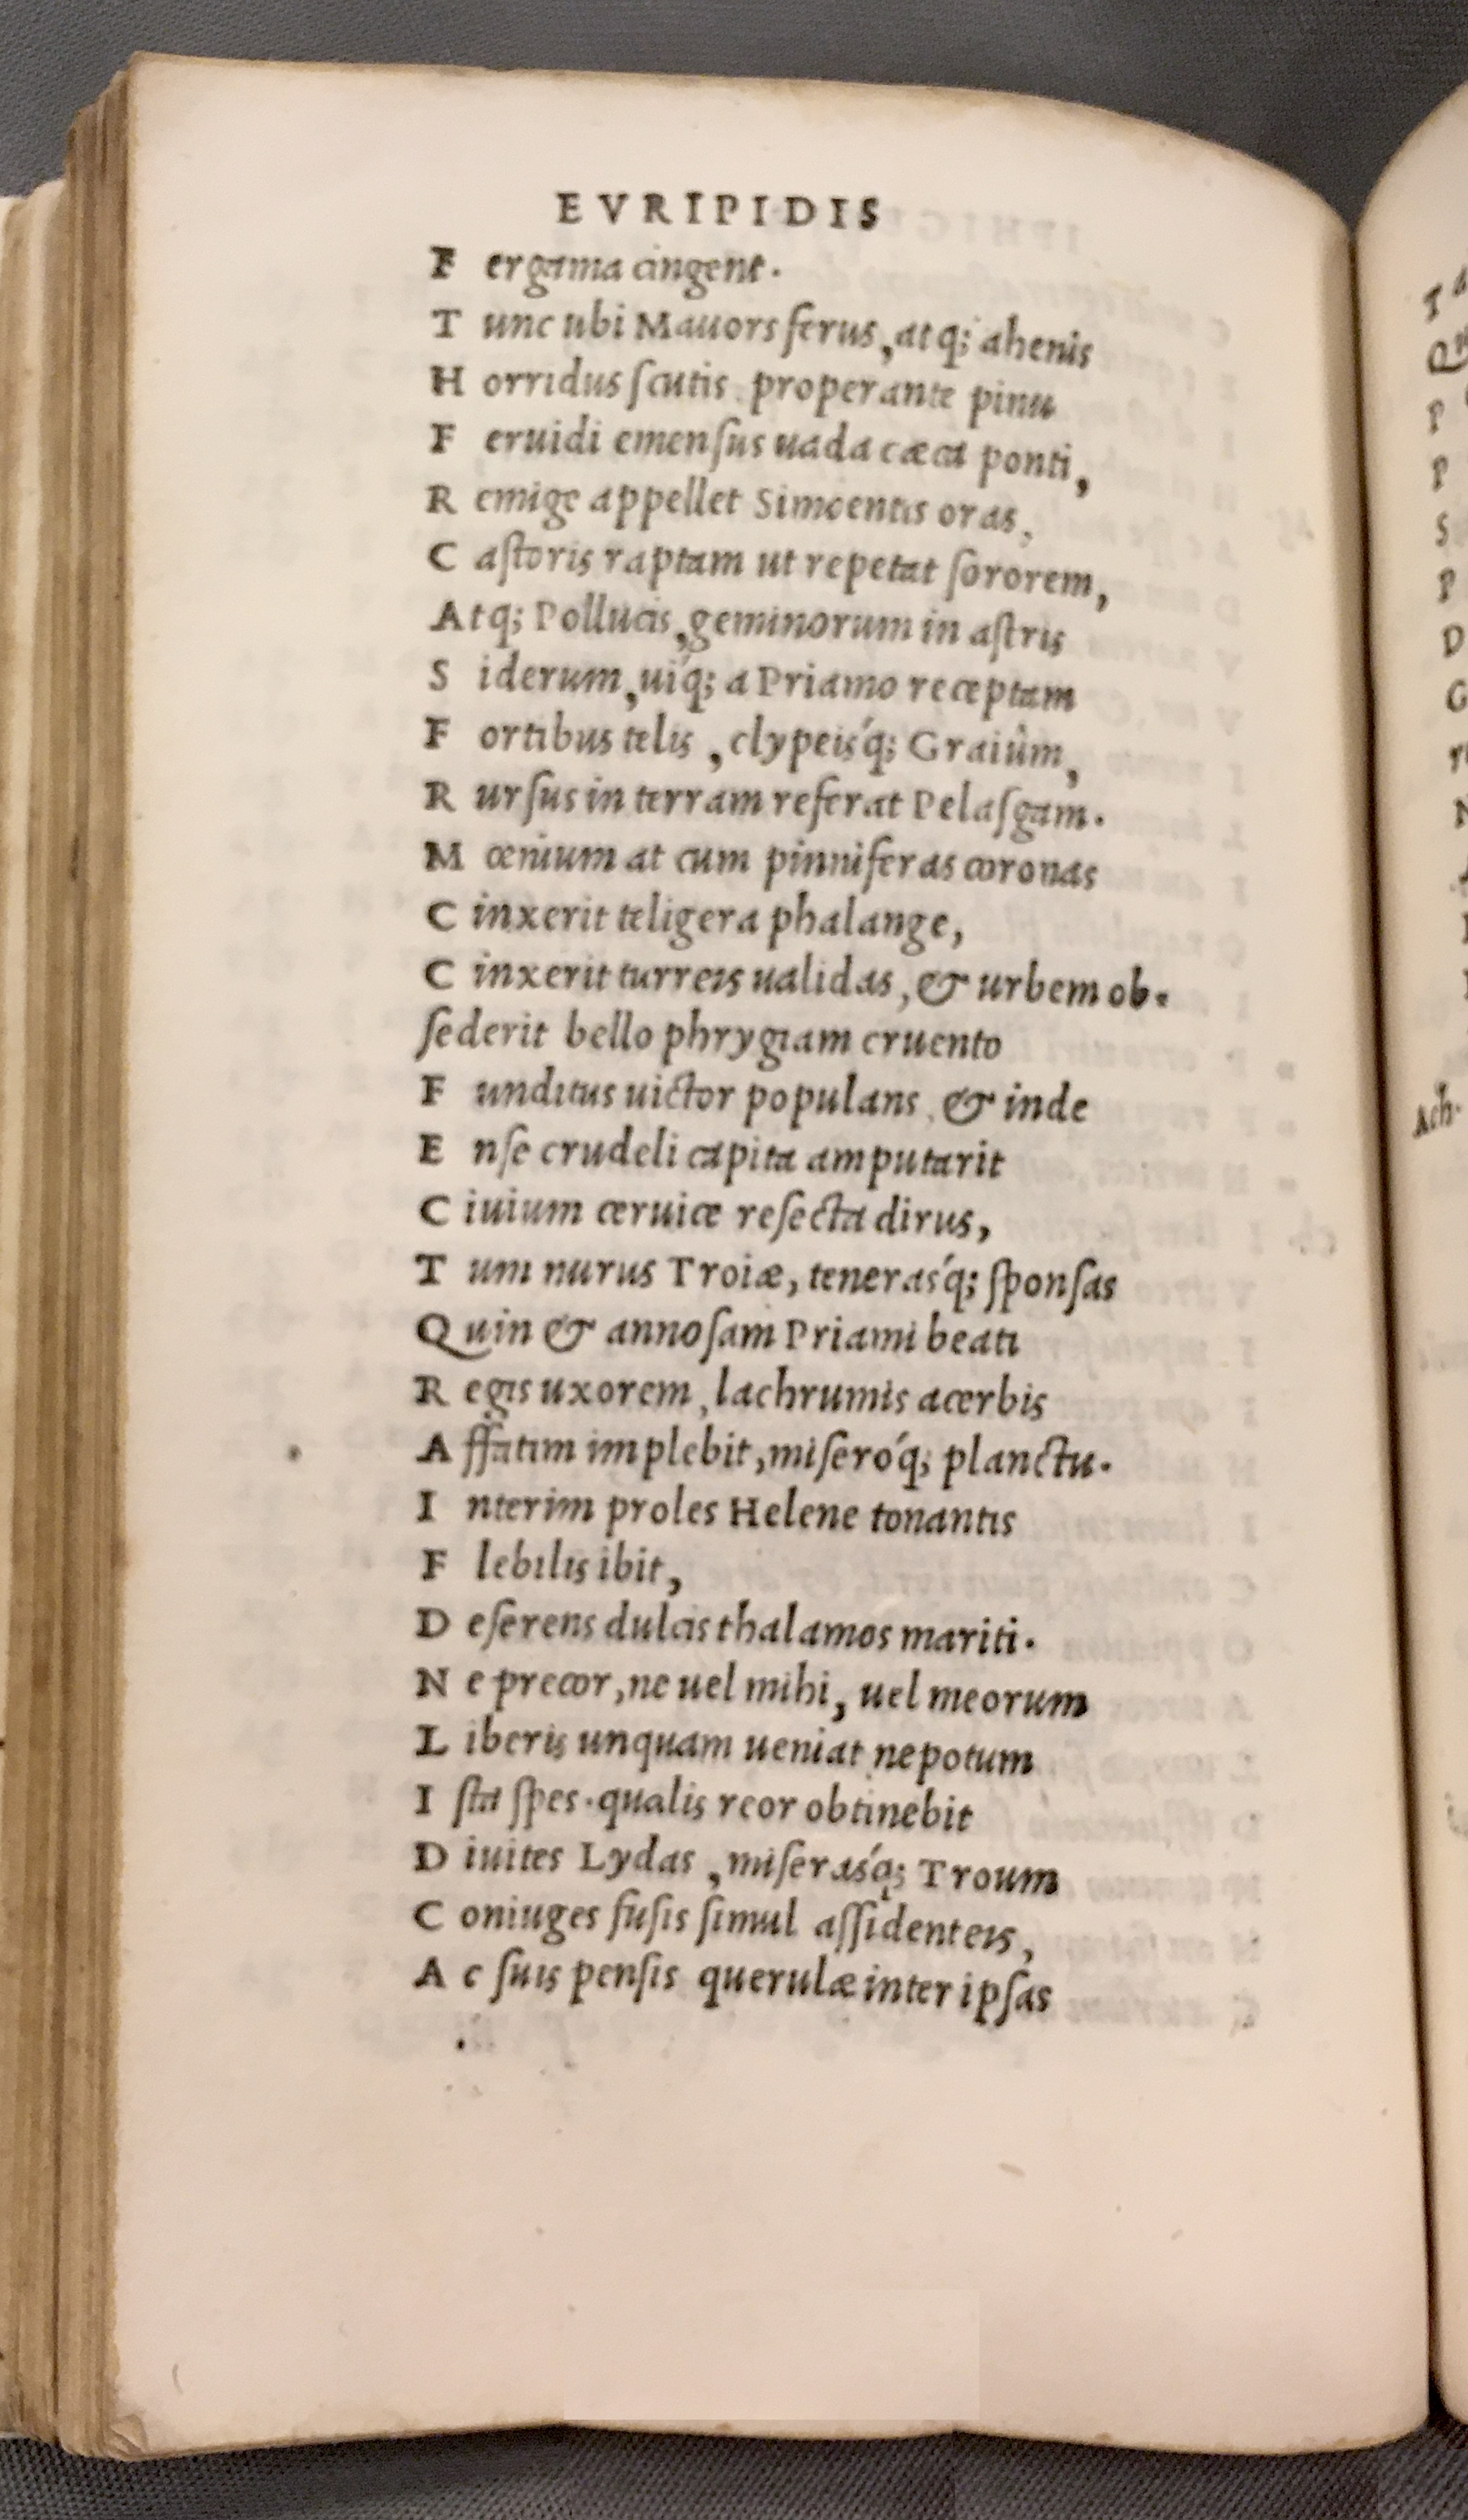 EVRIPIDIS
P ergama cingent.
T unc ubi Mauors ferus, atq; ahenis
H orridus ſcutis properante pinu
F eruidi emenſus uada cæca ponti,
R emige appellet Simoentis oras,
C aſtoris raptam ut repetat ſororem,
Atq; Pollucis, geminorum in aſtris
S iderum, uíq; a Priamo receptam
F ortibus telis, clypeiśq; Graiûm,
R urſus in terram referat Pelaſgam.
M œnium at cum pinniferas coronas
C inxerit teligera phalange,
C inxerit turreis ualidas, & urbem ob-
ſederit bello phrygiam cruento
F unditus uictor populans, & inde
E nſe crudeli capita amputarit
C iuium ceruice reſecta dirus,
T um nurus Troiæ, teneraśq; ſponſas
Q uin & annoſam Priami beati
R egis uxorem, lachrumis acerbis
A ffatim implebit, miſeróq; planctu.
I nterim proles Helene tonantis
F lebilis ibit,
D eſerens dulcis thalamos mariti.
N e precor, ne uel mihi, uel meorum
L iberis unquam ueniat nepotum
I ſta ſpes. qualis reor obtinebit
D iuites Lydas, miſeraśq; Troum
C oniuges fuſis ſimul aſſidenteis,
A c ſuis penſis querulæ inter ipſas
Ach.